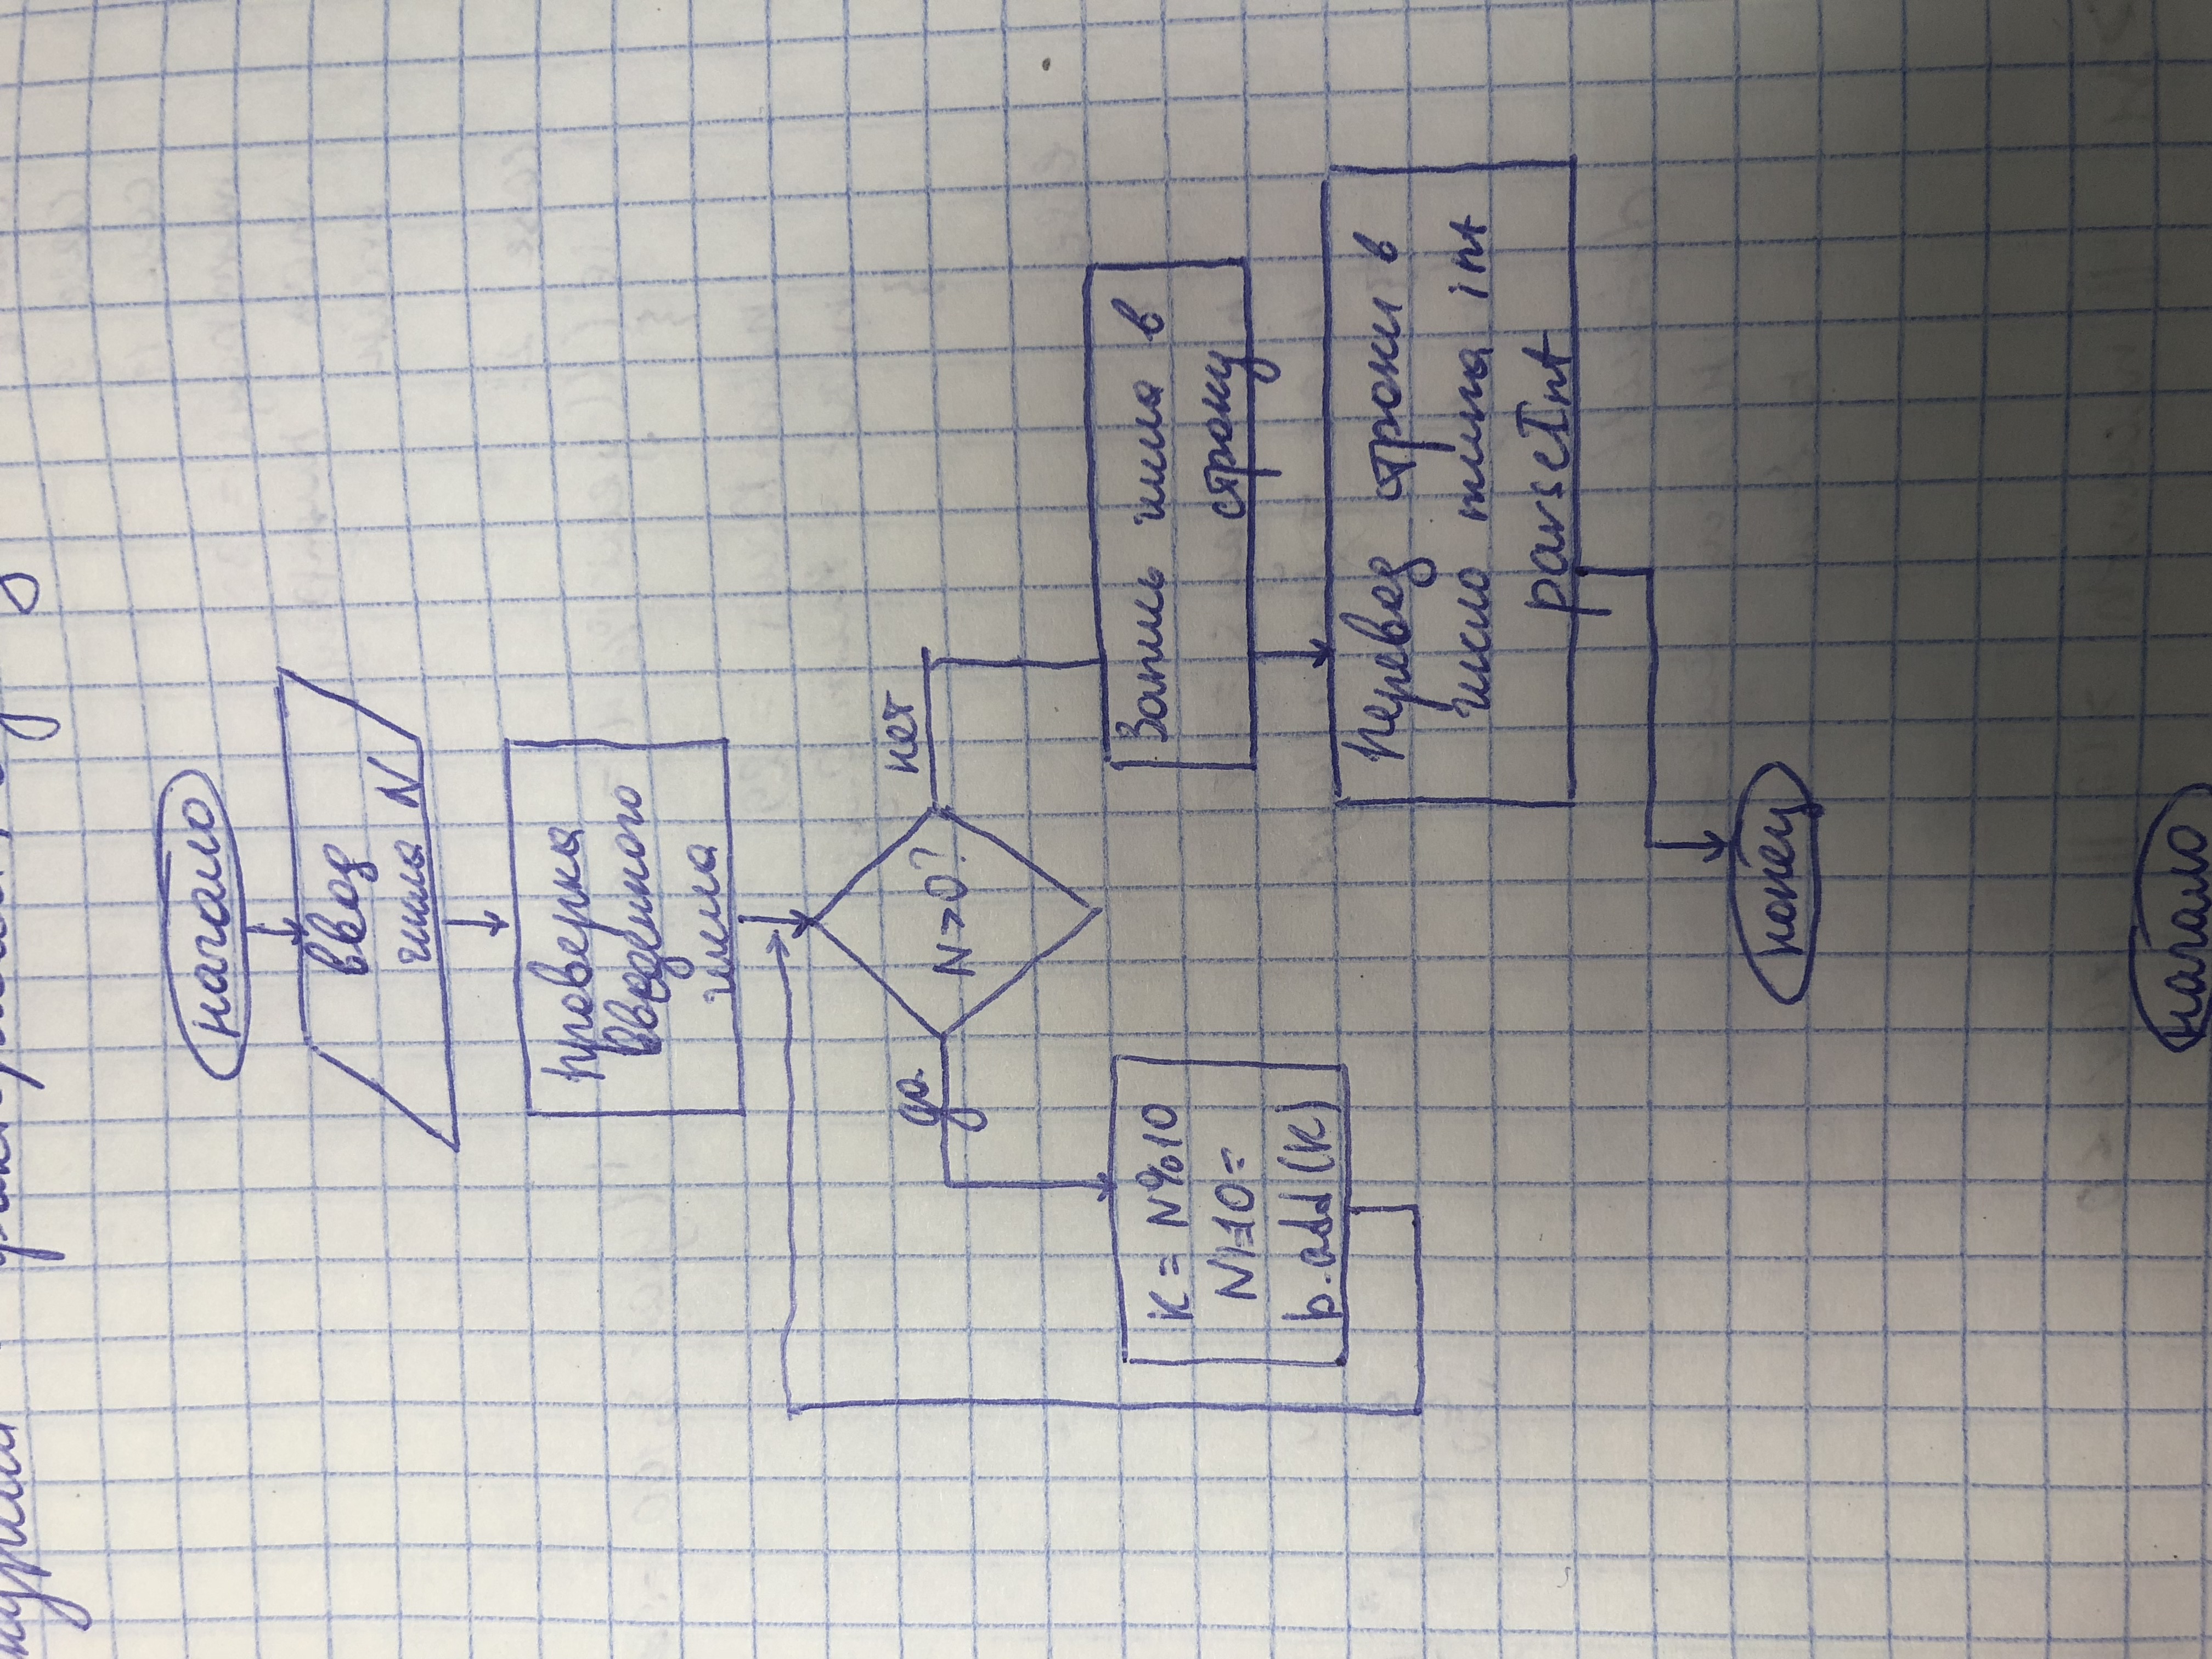 начало
ввод
числа N
Проверка
введенного
числа
да
нет
N>0?
K = N%10
b.add(K)
Запись числа в
строку
Перевод строки в
число типа int
parseInt
конец
начало